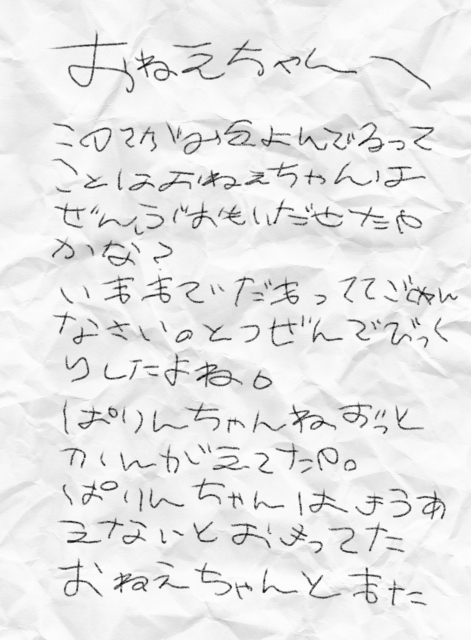 おねえちゃんへ
このてがみをよんでるって
ことはおねえちゃんは
ぜんぶおもいだせたの
かな?
いままでだまっててごめん
なさい。とつぜんでびっく
りしたよね。
ぱりんちゃんねずっと
かんがえてたの。
ぱりんちゃんはもうあ
えないとおもってた
おねえちゃんとまた